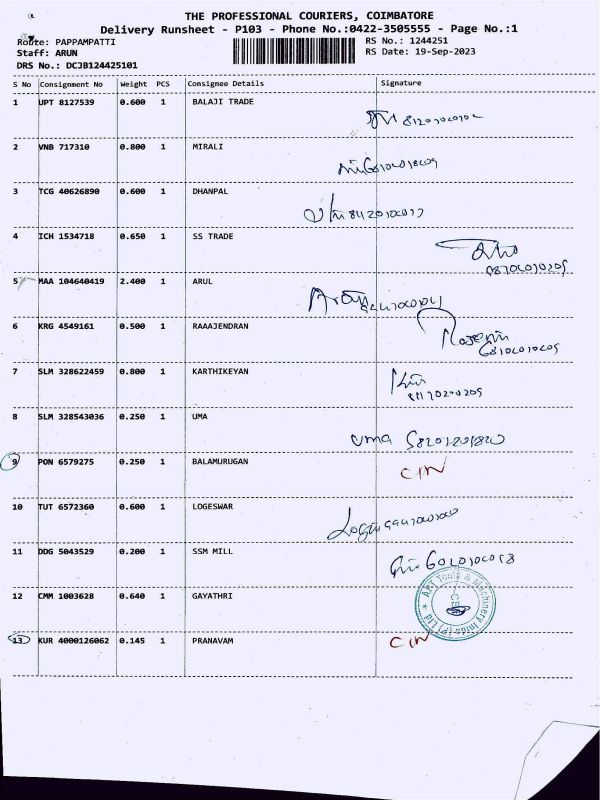 THE PROFESSIONAL COURIERS, COIMBATORE
Delivery Runsheet - P103 - Phone No.:0422-3505555 - Page No.:1
Route: PAPPAMPATTI
RS No.: 1244251
Staff: ARUN
RS Date: 19-Sep-2023
DRS No.: DCJB124425101
S No Consignment No Weight PCS Consignee Details Signature
1 UPT 8127539 0.600 1 BALAJI TRADE
2 VNB 717310 0.800 1 MIRALI
3 TCG 40626890 0.600 1 DHANPAL
4 ICH 1534718 0.650 1 SS TRADE
5 MAA 104640419 2.400 1 ARUL
6 KRG 4549161 0.500 1 RAAAJENDRAN
7 SLM 328622459 0.800 1 KARTHIKEYAN
8 SLM 328543036 0.250 1 UMA
uma
9 PON 6579275 0.250 1 BALAMURUGAN
CIN
10 TUT 6572360 0.600 1 LOGESWAR
11 DDG 5043529 0.200 1 SSM MILL
12 CMM 1003628 0.640 1 GAYATHRI
13 KUR 4000126062 0.145 1 PRANAVAM
CIN